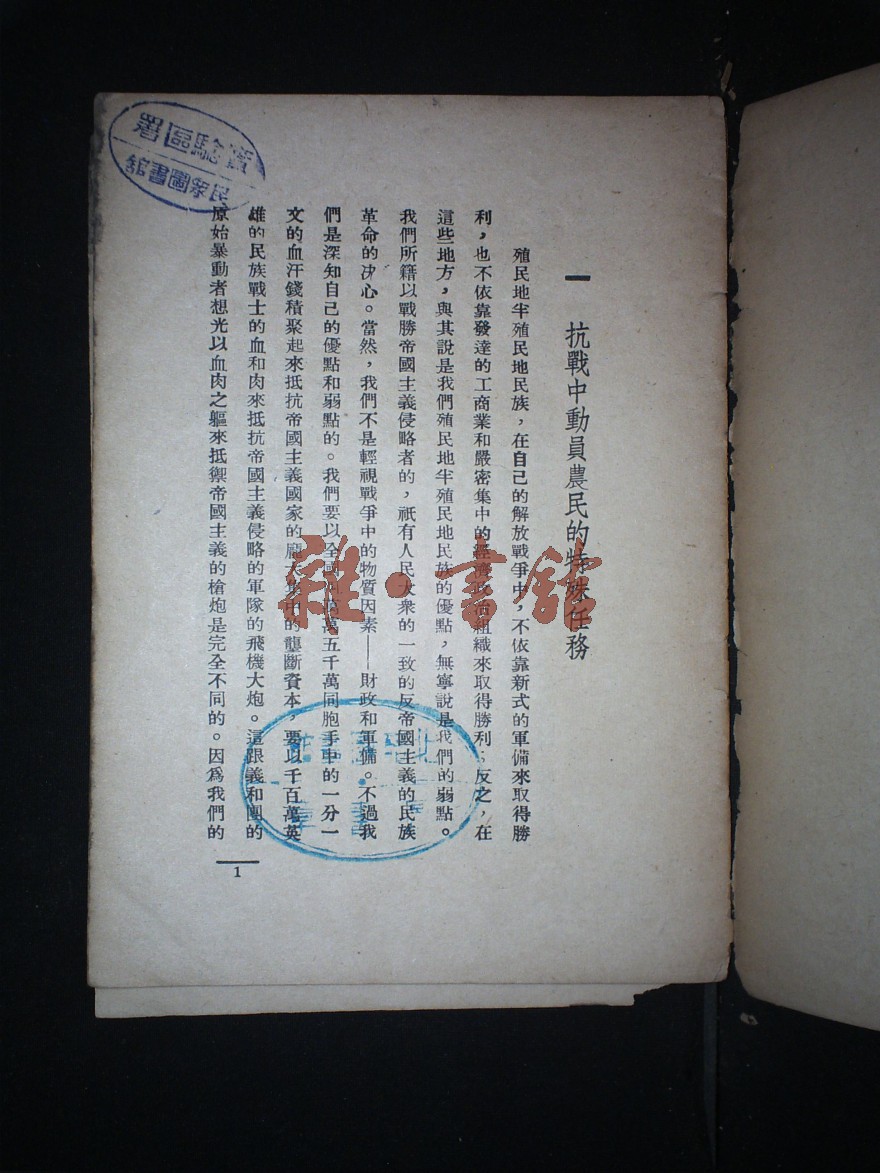 一　抗戰中動員農民的特殊任務
殖民地半殖民地民族，在自己的解放戰爭中，不依靠新式的軍備來取得勝
利，也不依靠發達的工商業和嚴密集中的經濟政治組織來取得勝利；反之，在
這些地方，與其說是我們殖民地半殖民地民族的優點，無寧說是我們的弱點。
我們所藉以戰勝帝國主義侵略者的，祇有人民大衆的一致的反帝國主義的民族
革命的決心。當然，我們不是輕視戰爭中的物質因素——財政和軍備。不過我
們是深知自己的優點和弱點的。我們要以全國四萬萬五千萬同胞手中的一分一
文的血汗錢積聚起來抵抗帝國主義國家的龐大集中的壟斷資本，要以千百萬英
雄的民族戰士的血和肉來抵抗帝國主義侵略的軍隊的飛機大炮。這跟義和團的
原始暴動者想光以血肉之軀來抵禦帝國主義的槍炮是完全不同的。因爲我們的
1
實驗區署
民衆圖書館
雜·書館